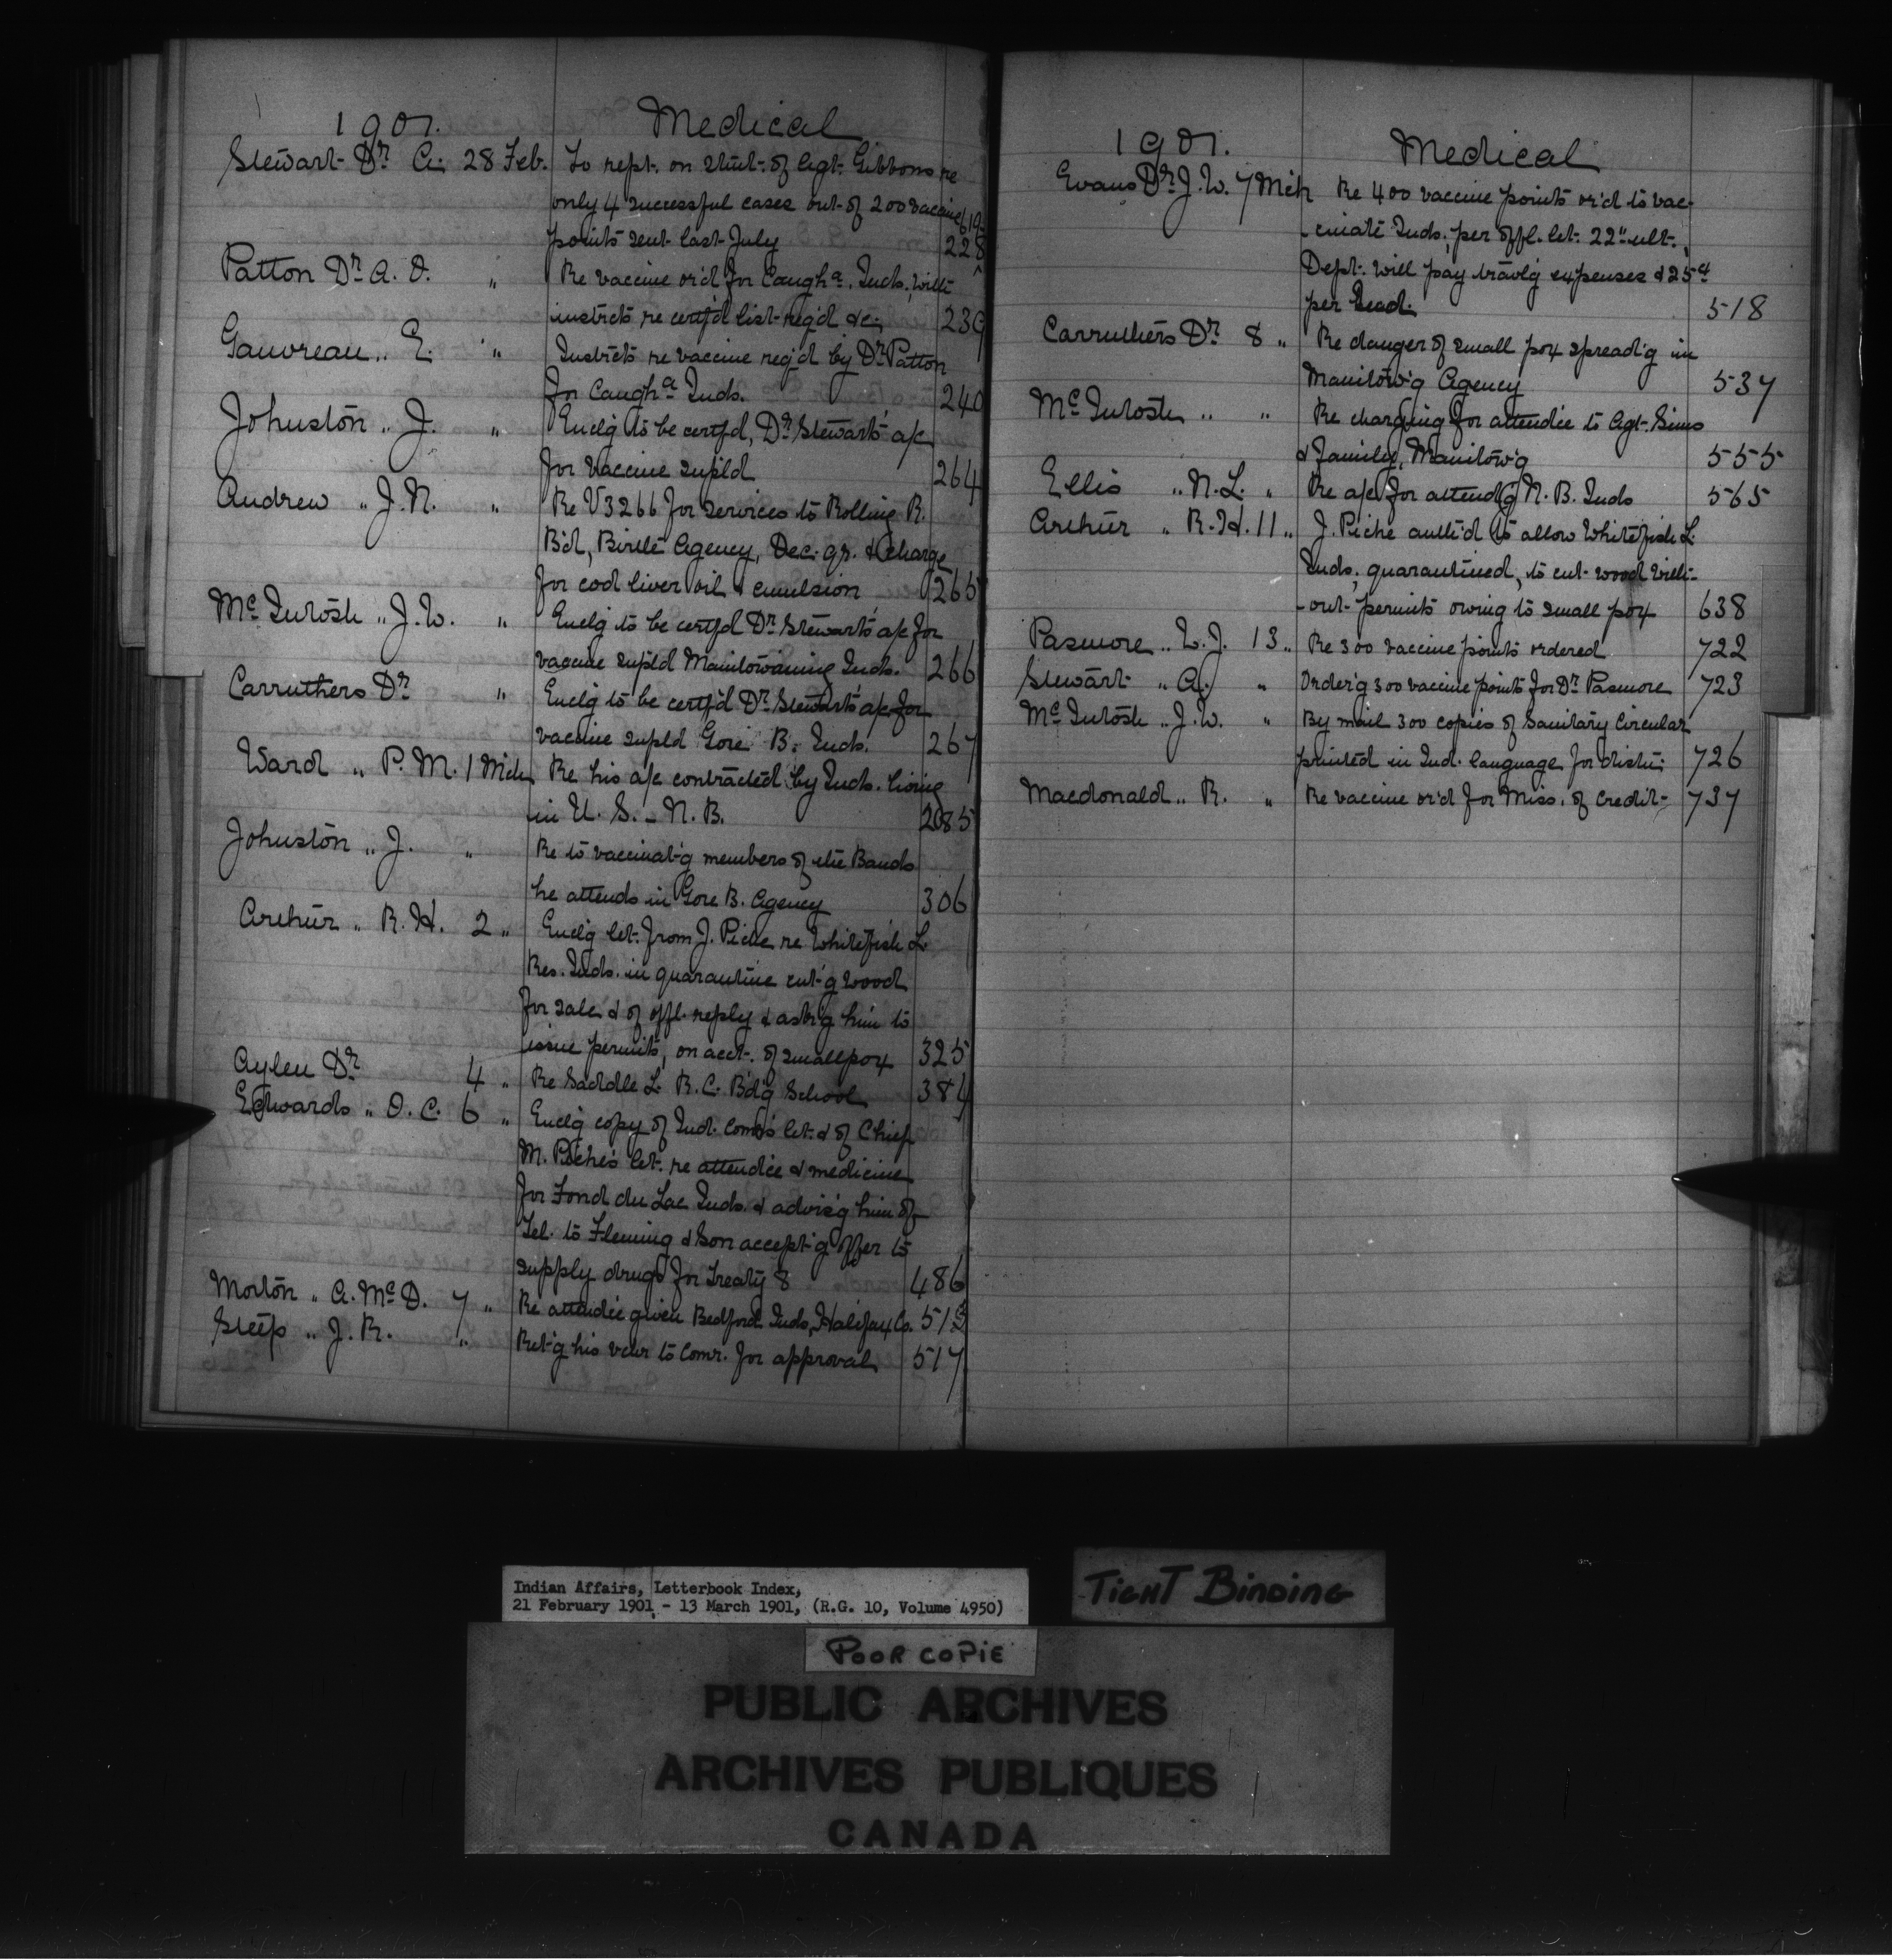 1901. Medical
Stewart Dr. A. 28 Feb. To rept. on stmt. of Agt. Gibbons re
only 4 successful cases out of 200 vaccine 219
points sent last July 228
Patton Dr. A. O. " Re vaccine or'd for Caugha. Inds., with
instrcts re certf'd list req'd &c. 239
Gauvreau " E. " Instrcts re vaccine req'd by Dr. Patton
for Caugha Inds. 240
Johnston " J. " Enclg to be certf'd, Dr. Stewart's a/c
for vaccine supl'd 264
Andrew " J. N. " Re V3266 for services to Rolling R.
B'd, Birtle Agency, Dec. qr. & charge
for cod liver oil & emulsion 265
McIntosh " J. W. " Enclg to be certf'd Dr. Stewart's a/c for
vaccine supl'd Manitowaning Inds. 266
Carruthers Dr. " Enclg to be certf'd Dr. Stewart's a/c for
vaccine supl'd Gore B. Inds. 267
Ward " P. M. 1 Mch Re his a/c contracted by Inds. living
in U. S. - N. B. 285
Johnston " J. " Re to vaccinat'g members of the Bands
he attends in Gore B. Agency 306
Arthur " R. H. 2 " Enclg let. from J. Piche re Whitefish L.
Res. Inds. in quarantine cut'g wood
for sale & of offl. reply & ask'g him to
issue permits, on acct. of smallpox 325
Aylen Dr. 4 " Re Saddle L. R. C. B'd'g School 384
Edwards " O. C. 6 " Enclg copy of Ind. Com's let. & of Chief
M. Piche's let. re attend'ce & medicine
for Fond du Lac Inds. & advis'g him of
Tel. to Fleming & Son accept'g offer to
supply drugs for Treaty 8 486
Morton " A. McD. 7 " Re attend'ce given Bedford Inds, Halifax Co. 513
Steep " J. R. " Ret'g his vchr to Comr. for approval 517
1901. Medical
Evans Dr. J. W. 7 Mch Re 400 vaccine points or'd to vac-
-cinate Inds., per offl. let. 22" ult.,
Dept. will pay travl'g expenses & 25¢
per head. 518
Carruthers Dr. 8 " Re danger of small pox spread'g in
Manitow'g Agency 537
McIntosh " " Re charging for attend'ce to Agt. Sims
& family, Manitow'g 555
Ellis " N. L. " Re a/c for attend'g N. B. Inds 565
Arthur " R. H. 11 " J. Piche auth'd to allow Whitefish L.
Inds., quarantined, to cut wood with-
-out permits owing to small pox 638
Pasmore " W. J. 13 " Re 300 vaccine points ordered 722
Stewart " A. " Order'g 300 vaccine points for Dr. Pasmore 723
McIntosh " J. W. " By mail 300 copies of Sanitary Circular
printed in Ind. language for distn. 726
Macdonald " R. " Re vaccine or'd for Miss. of Credit 737
Indian Affairs, Letterbook Index,
21 February 1901 - 13 March 1901, (R.G. 10, Volume 4950)
TIGHT BINDING
POOR COPIE
PUBLIC ARCHIVES
ARCHIVES PUBLIQUES
CANADA